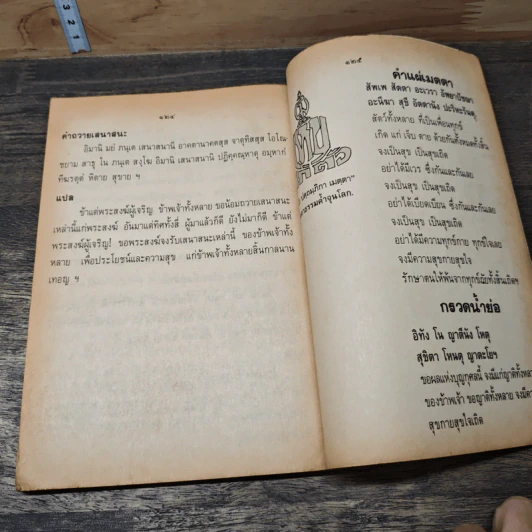 ๑๒๔
คำถวายเสนาสนะ
อิมานิ มยํ ภนฺเต เสนาสนานิ อาคตานาคตสฺส จาตุทิสสฺส โอโณ-
ชยาม สาธุ โน ภนฺเต สงฺโฆ อิมานิ เสนาสนานิ ปฏิคฺคณฺหาตุ อมฺหากํ
ทีฆรตฺตํ หิตาย สุขาย ฯ
แปล
ข้าแต่พระสงฆ์ผู้เจริญ ข้าพเจ้าทั้งหลาย ขอน้อมถวายเสนาสนะ
เหล่านี้แก่พระสงฆ์ อันมาแต่ทิศทั้งสี่ ผู้มาแล้วก็ดี ยังไม่มาก็ดี ข้าแต่
พระสงฆ์ผู้เจริญ! ขอพระสงฆ์จงรับเสนาสนะเหล่านี้ ของข้าพเจ้าทั้ง
หลาย เพื่อประโยชน์และความสุข แก่ข้าพเจ้าทั้งหลายสิ้นกาลนาน
เทอญ ฯ
๑๒๕
คำแผ่เมตตา
สัพเพ สัตตา อะเวรา อัพยาปัชฌา
อะนีฆา สุขี อัตตานัง ปะริหะรันตุ
สัตว์ทั้งหลาย ที่เป็นเพื่อนทุกข์
เกิด แก่ เจ็บ ตาย ด้วยกันทั้งหมดทั้งสิ้น
จงเป็นสุข เป็นสุขเถิด
อย่าได้มีเวร ซึ่งกันและกันเลย
จงเป็นสุข เป็นสุขเถิด
อย่าได้เบียดเบียน ซึ่งกันและกันเลย
จงเป็นสุข เป็นสุขเถิด
อย่าได้มีความทุกข์กาย ทุกข์ใจเลย
จงมีความสุขกายสุขใจ
รักษาตนให้พ้นจากทุกข์ภัยทั้งสิ้นเถิด
โลโกปตฺถมฺภิกา เมตฺตา"
ธรรมค้ำจุนโลก.
กรวดน้ำย่อ
อิทัง โน ญาตีนัง โหตุ
สุขิตา โหนตุ ญาตะโยฯ
ขอผลแห่งบุญกุศลนี้ จงมีแก่ญาติทั้งหลาย
ของข้าพเจ้า ขอญาติทั้งหลาย จงมี
สุขกายสุขใจเถิด
2
3